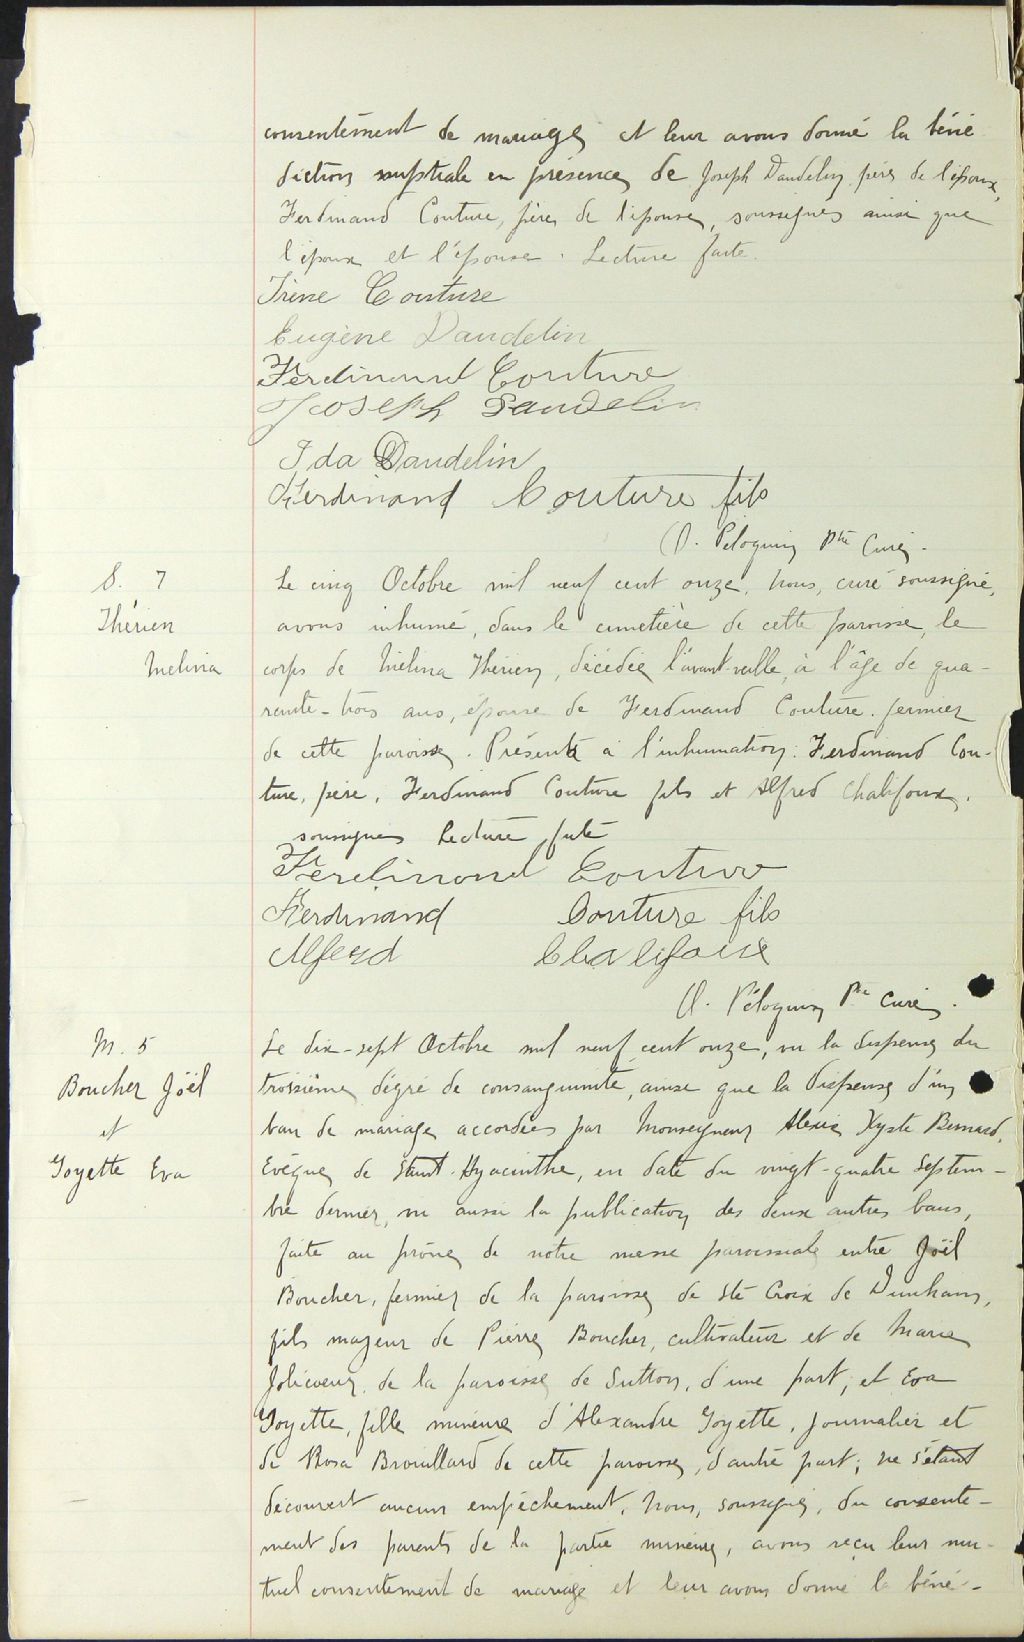 consentement de mariage et leur avons donné la béné
diction nuptiale en présence de Joseph Dandelin père de l'époux,
Ferdinand Couture, père de l'épouse, soussignés ainsi que
l'époux et l'épouse. Lecture faite.
Irène Couture
Eugène Dandelin
Ferdinand Couture
Joseph Dandelin
Ida Dandelin
Ferdinand Couture fils
Péloquin Ptre Curé.
S. 7
Thérien
Mélina
Le cinq Octobre mil neuf cent onze, nous, curé soussigné,
avons inhumé, dans le cimetière de cette paroisse, le
corps de Mélina Thérien, décédée l'avant-veille, à l'âge de qua-
rante-trois ans, épouse de Ferdinand Couture, fermier
de cette paroisse. Présents à l'inhumation: Ferdinand Cou-
ture, père, Ferdinand Couture fils et Alfred Chalifoux,
soussignés Lecture faite
Ferdinand Couture
Ferdinand Couture fils
Alferd Chalifoux
Péloquin Ptre Curé.
M. 5
Boucher Joël
et
Goyette Eva
Le dix-sept Octobre mil neuf cent onze, vu la dispense du
troisième dégré de consanguinité, ainsi que la dispense d'un
ban de mariage accordées par Monseigneur Alexis Xyste Bernard,
Evêque de Saint-Hyacinthe, en date du vingt-quatre Septem-
bre dernier, vu aussi la publication des deux autres bans,
faite au prône de notre messe paroissiale entre Joël
Boucher, fermier de la paroisse de Ste Croix de Dunham,
fils majeur de Pierre Boucher, cultivateur et de Marie
Jolicoeur, de la paroisse de Sutton, d'une part; et Eva
Goyette, fille mineure d'Alexandre Goyette, journalier et
de Rosa Brouillard de cette paroisse, d'autre part; ne s'étant
découvert aucun empêchement, nous, soussigné, du consente-
ment des parents de la partie mineure, avons reçu leur mu-
tuel consentement de mariage et leur avons donné la béné-